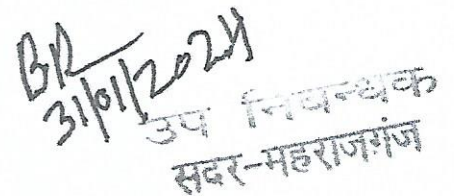 BR
31/01/2024
उप निबन्धक
सदर-महराजगंज